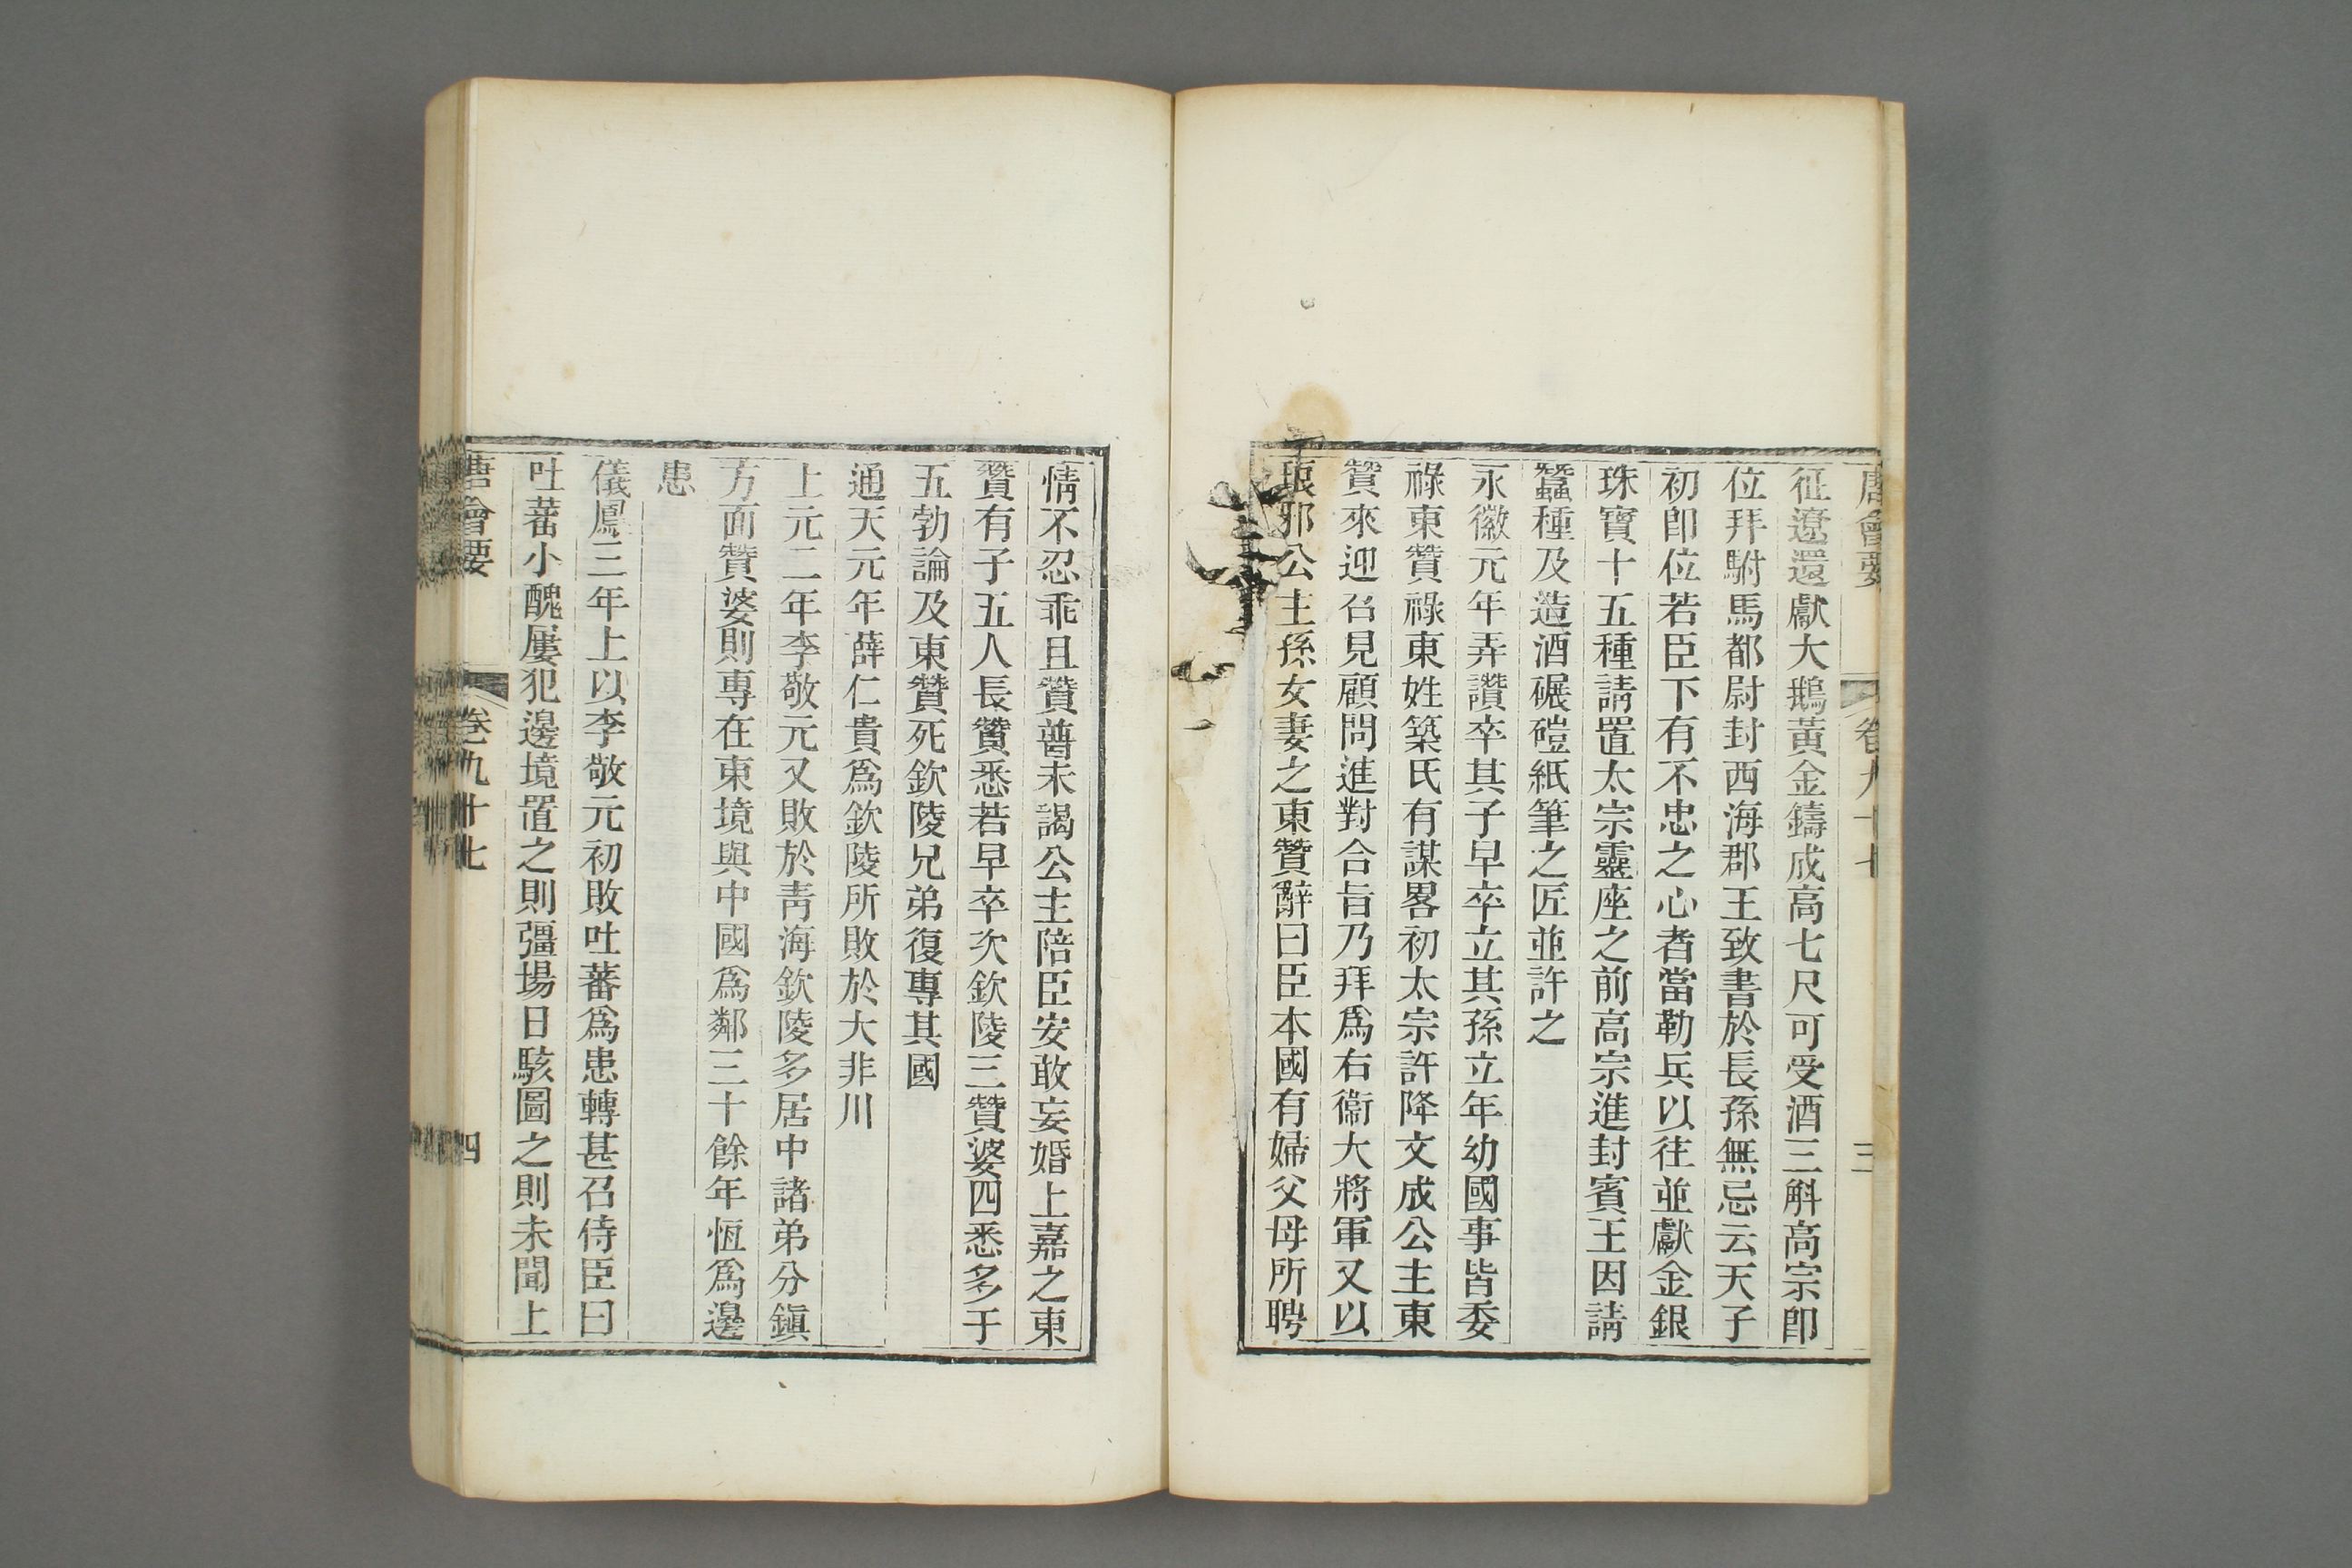 唐會要 卷九十七 三
征遼還獻大鵝黃金鑄成高七尺可受酒三斛高宗卽
位拜駙馬都尉封西海郡王致書於長孫無忌云天子
初卽位若臣下有不忠之心者當勒兵以往並獻金銀
珠寶十五種請置太宗靈座之前高宗進封賓王因請
蠶種及造酒碾磑紙筆之匠並許之
永徽元年弄讚卒其子早卒立其孫立年幼國事皆委
祿東贊祿東姓築氏有謀畧初太宗許降文成公主東
贊來迎召見顧問進對合旨乃拜爲右衞大將軍又以
琅邪公主孫女妻之東贊辭曰臣本國有婦父母所聘
情不忍乖且贊普未謁公主陪臣安敢妄婚上嘉之東
贊有子五人長贊悉若早卒次欽陵三贊婆四悉多于
五勃論及東贊死欽陵兄弟復專其國
通天元年薛仁貴爲欽陵所敗於大非川
上元二年李敬元又敗於青海欽陵多居中諸弟分鎭
方面贊婆則專在東境與中國爲鄰三十餘年恆爲邊
患
儀鳳三年上以李敬元初敗吐蕃爲患轉甚召侍臣曰
吐蕃小醜屢犯邊境置之則彊場日駭圖之則未聞上
唐會要 卷九十七 四